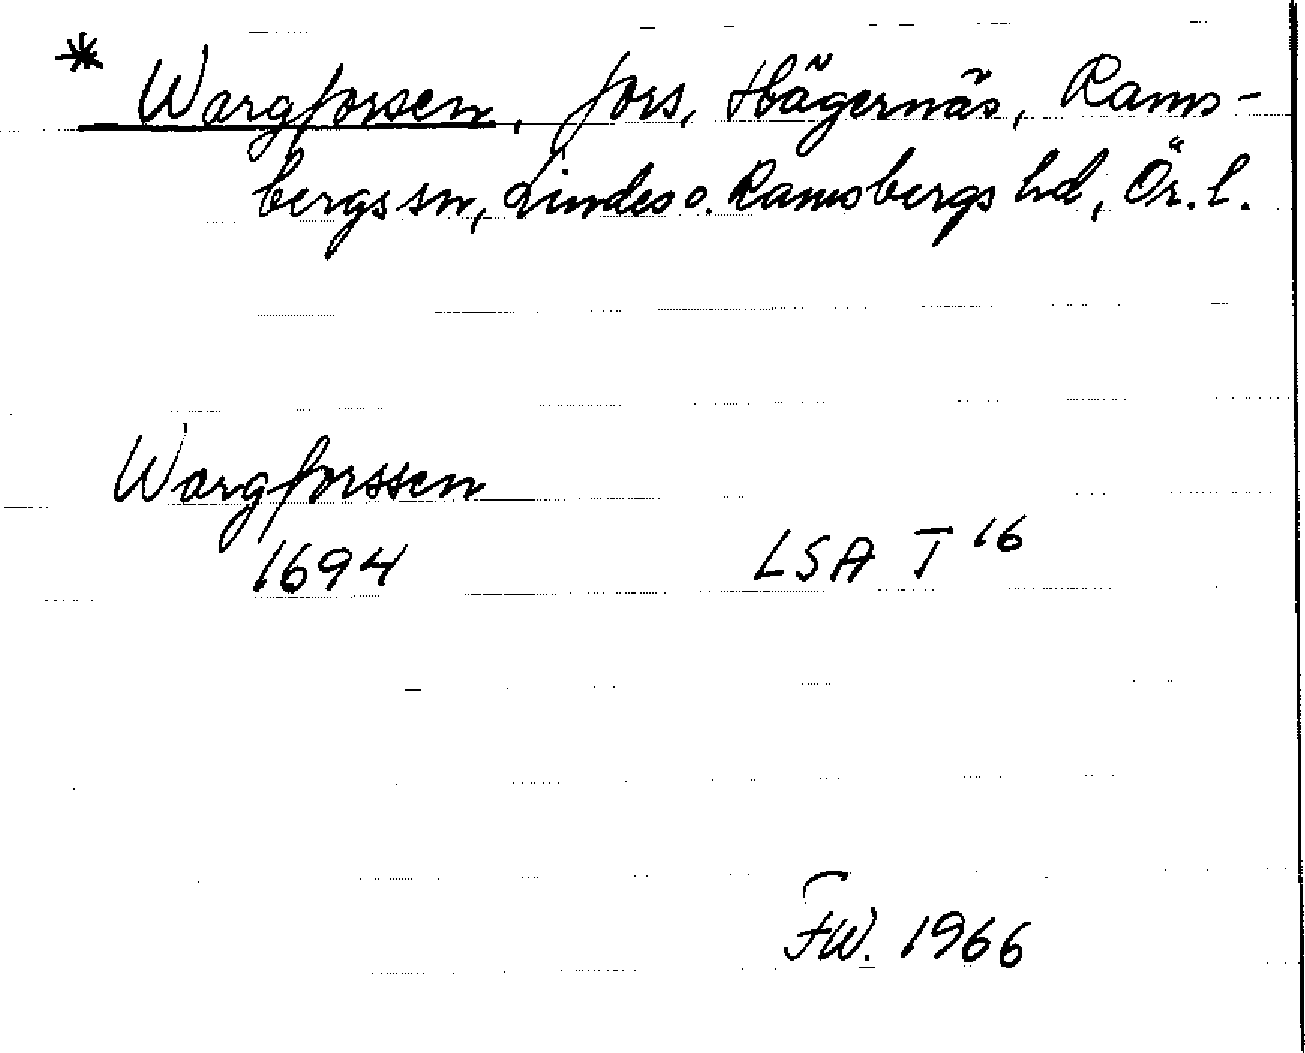 * Wargforsen, fors, Hägernäs, Rams-
bergs sn, Lindes o. Ramsbergs hd, Ör. l.
Wargforssen
1694 LSA T 16
FW. 1966